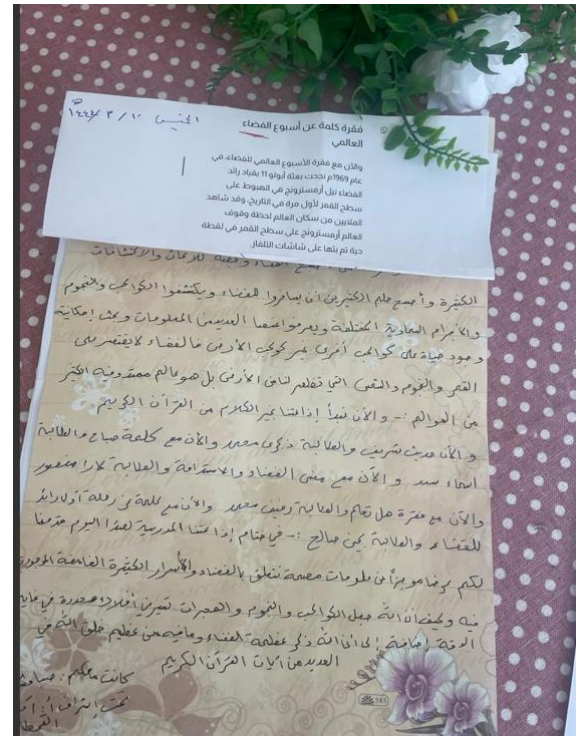 الخميس ١٠ / ٣ /
فقرة كلمة عن أسبوع الفضاء
العالمي
والآن مع فقرة الأسبوع العالمي للفضاء، في
عام 1969م نجحت بعثة أبولو 11 بقياد رائد
الفضاء نيل أرمسترونج في الهبوط على
سطح القمر لأول مرة في التاريخ، وقد شاهد
الملايين من سكان العالم لحظة وقوف
العالم أرمسترونج على سطح القمر في لقطة
حية تم بثها على شاشات التلفاز.
الفضاء للأبحاث والاكتشافات
الكثيرة وأصبح حلم الكثيرين أن يسافروا للفضاء ويكتشفوا الكواكب والنجوم
والأجرام السماوية المختلفة ويعرفوا عنها العديد من المعلومات وبحث إمكانية
وجود حياة على كواكب أخرى غير كوكب الأرض فالفضاء لا يقتصر على
القمر والنجوم والشمس التي تظهر لنا في الأرض بل هو عالم ممتد وفيه الكثير
من العوالم :- والآن نبدأ إذاعتنا بخير الكلام من القرآن الكريم
و الآن حديث شريف والطالبة ذكرى محمد والآن مع كلمة صباح والطالبة
أسماء سند و الآن مع معنى الفضاء والاستدامة والطالبة لارا منصور
والآن مع فقرة هل تعلم والطالبة رهف محمد والآن مع كلمة عن رحلة أول رائد
للفضاء والطالبة يمن صالح :- في ختام إذاعتنا المدرسية لهذا اليوم قدمنا
لكم معلومات مهمة تتعلق بالفضاء والأسرار الكثيرة الغامضة الموجودة
فيه وكيف أن الله جعل الكواكب والنجوم والمجرات تسير في أفلاك محددة في غاية
الدقة إضافة إلى أن الله ذكر عظمة الفضاء وما فيه من عظيم خلق الله في
العديد من آيات القرآن الكريم
كانت معكم :
تحت إشراف أ :